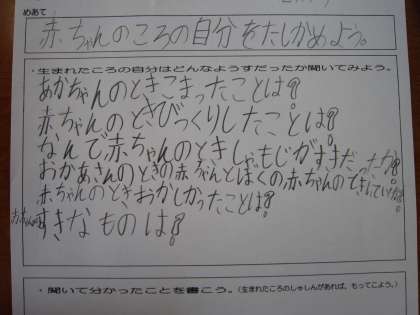 めあて
赤ちゃんのころの自分をたしかめよう。
・生まれたころの自分はどんなようすだったか聞いてみよう。
あかちゃんのときこまったことは?
赤ちゃんのときびっくりしたことは?
なんで赤ちゃんのときしゃもじがすきだったか?
おかあさんのときの赤ちゃんとぼくの赤ちゃんのときにていた?
赤ちゃんのときおかしかったことは?
すきなものは?
・聞いて分かったことを書こう。(生まれたころのしゃしんがあれば、もってこよう。)